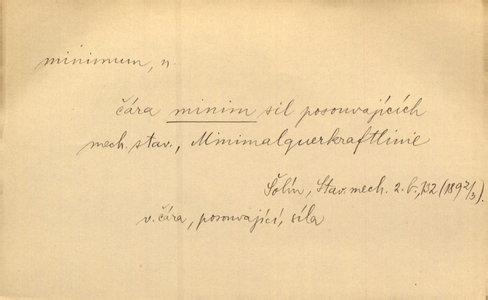 minimum, n.
čára minim sil posouvajících
mech. stav., Minimalquerkraftlinie
Šolín, Stav. mech. 2. b., 152 (1892/3).
v. čára, posouvající, síla